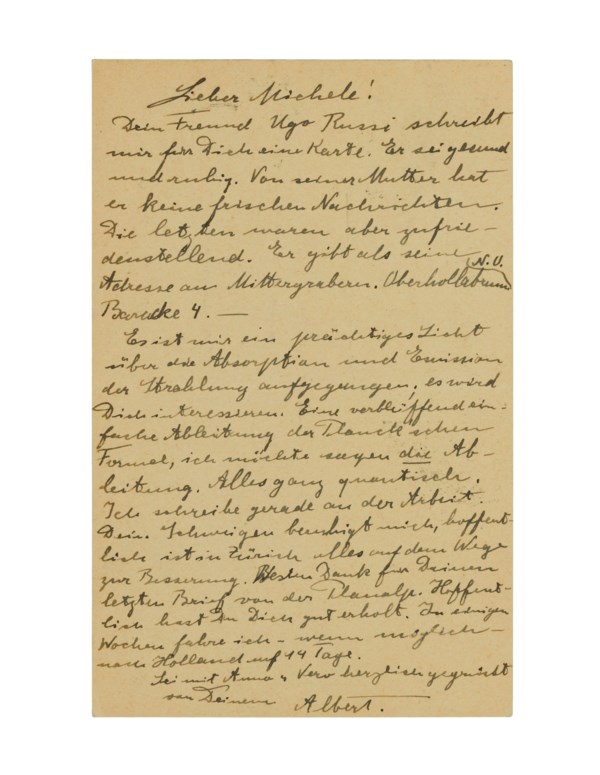 Lieber Michele!
Dein Freund Ugo Russi schreibt
mir für Dich eine Karte. Er sei gesund
und ruhig. Von seiner Mutter hat
er keine frischen Nachrichten.
Die letzten waren aber zufrie-
denstellend. Er gibt als seine
Adresse an Mittergrabern. Oberhollabrunn N.Ö.
Baracke 4. —
Es ist mir ein prächtiges Licht
über die Absorption und Emission
der Strahlung aufgegangen; es wird
Dich interessieren. Eine verblüffend ein-
fache Ableitung der Planck'schen
Formel, ich möchte sagen die Ab-
leitung. Alles ganz quantisch.
Ich schreibe gerade an der Arbeit.
Dein Schweigen beruhigt mich, hoffent-
lich ist in Zürich alles auf dem Wege
zur Besserung. Besten Dank für Deinen
letzten Brief von der Planalp. Hoffent-
lich hast Du Dich gut erholt. In einigen
Wochen fahre ich – wenn möglich –
nach Holland auf 14 Tage.
Sei mit Anna & Vero herzlich gegrüsst
von Deinem Albert.